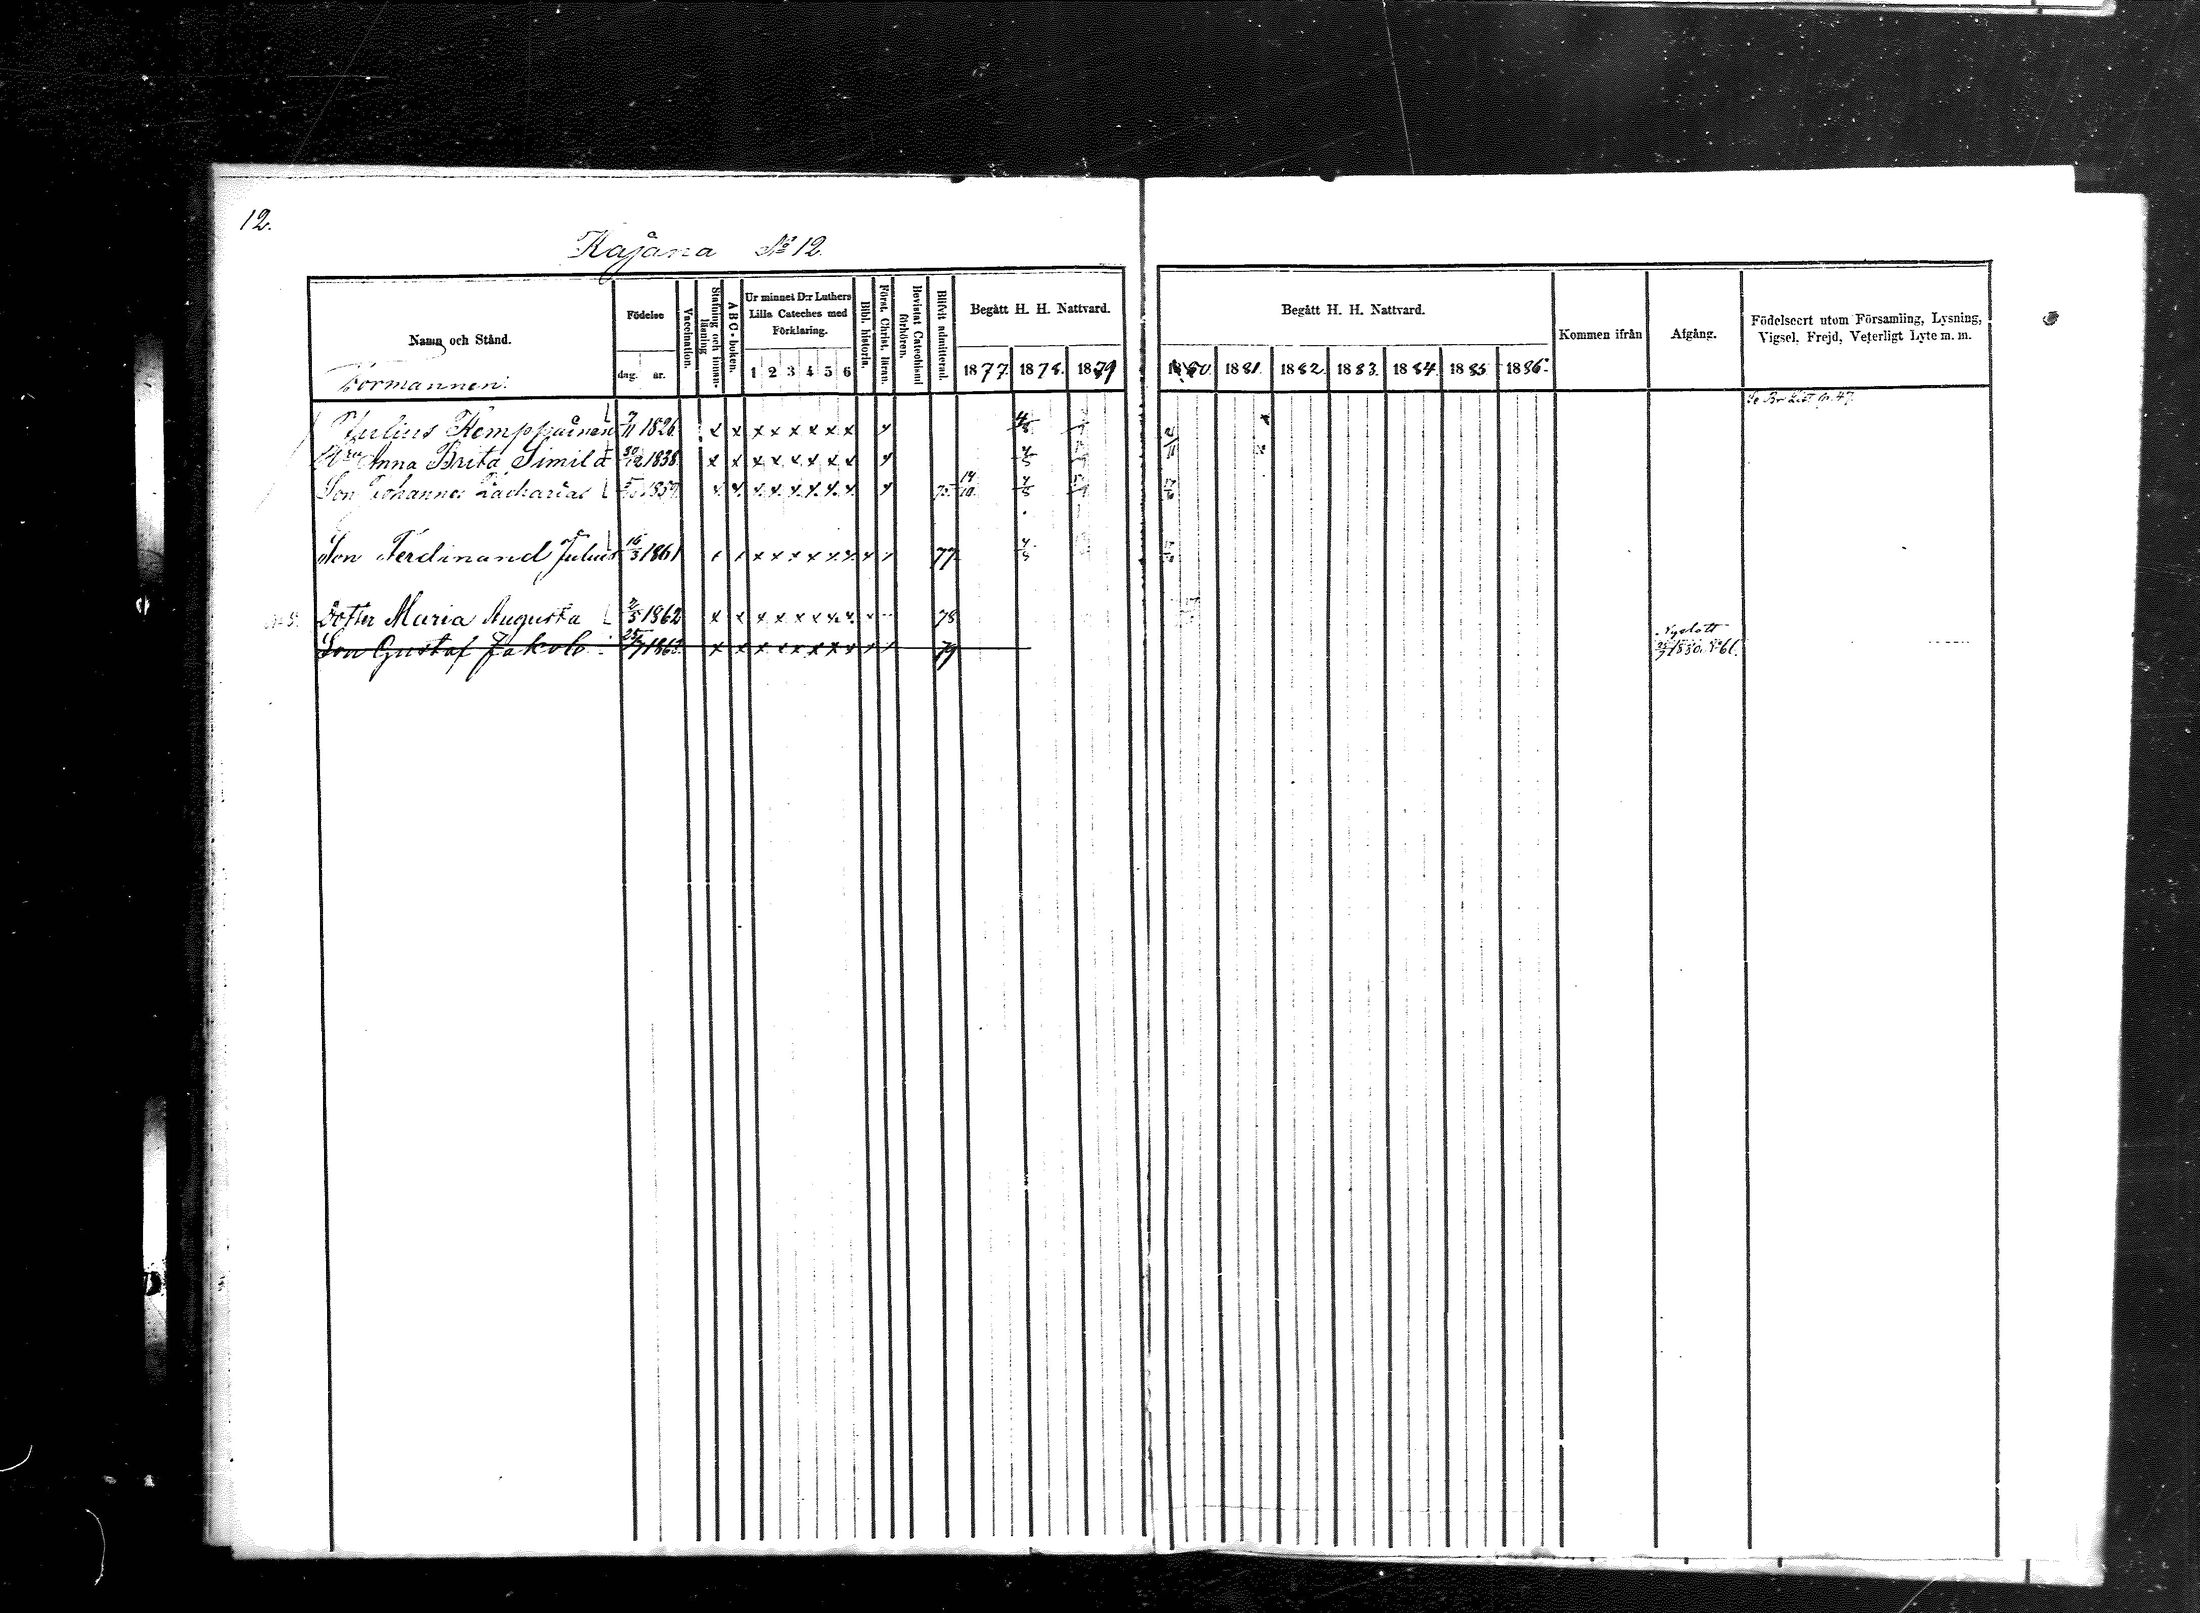 12.
Kajana No 12.
Namn och Stånd.
Födelse
dag. år.
Vaccination.
Stafning och innan-läsning
ABC-boken.
Ur minnet D:r Luthers Lilla Cateches med Förklaring.
1 2 3 4 5 6
Bibl. historia.
Först. Christ. läran.
Bevistat Catechismi förhören.
Blifvit admitterad.
Begått H. H. Nattvard.
1877. 1878. 1879
Begått H. H. Nattvard.
1880. 1881. 1882. 1883. 1884. 1885 1886.
Kommen ifrån
Afgång.
Födelseort utom Församling, Lysning, Vigsel, Frejd, Veterligt Lyte m. m.
Formannen:
Julius Kemppainen 7/11 1826 x x x x x x x x x 4/8
Anna Brita Similä 30/12 1838 x x x x x x x x x 4/8
Son Johannes Zacharias 1859 x x x x x x x x x 75 14/10 4/8 17/6
Son Ferdinand Julius 16/3 1861 x x x x x x x x x x 77 4/8
Dotter Maria Augusta 2/5 1862 x x x x x x x x x 78
Son Gustaf Jakob 25/7 1863 x x x x x x x x x x 79 Nyslott 1880